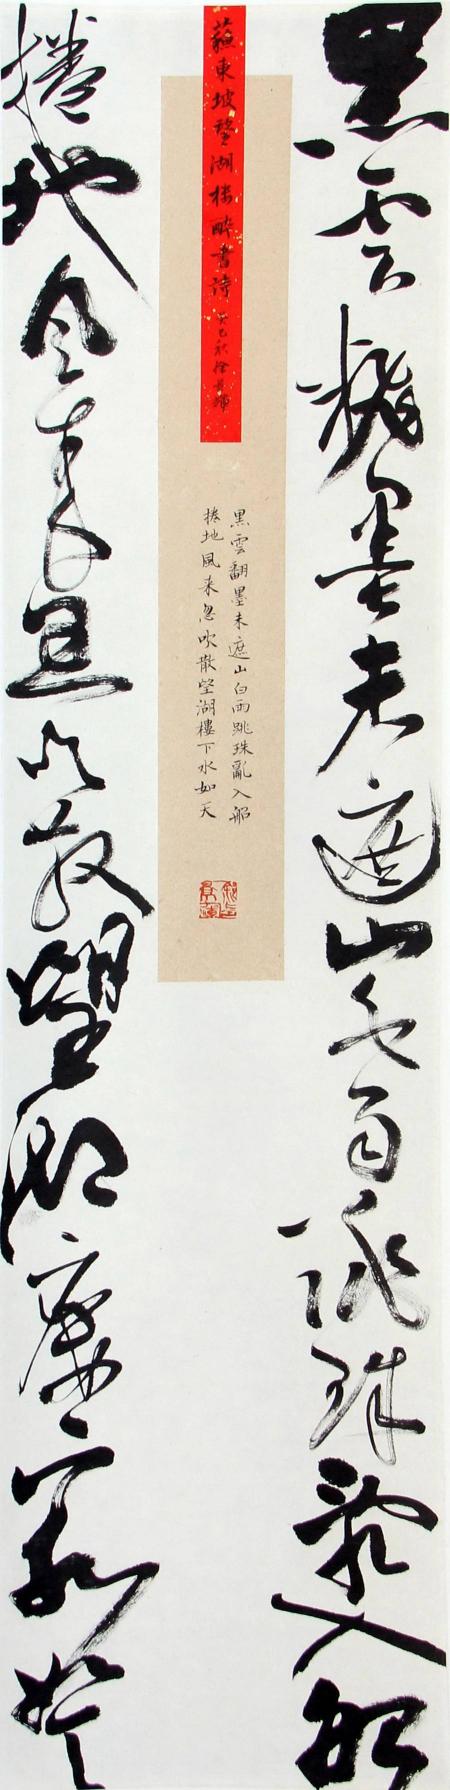 黑雲翻墨未遮山白雨跳珠亂入船
蘇東坡望湖楼醉書詩
癸巳秋徐
黑雲翻墨未遮山白雨跳珠亂入船
捲地風来忽吹散望湖樓下水如天
捲地風来忽吹散望湖樓下水如天